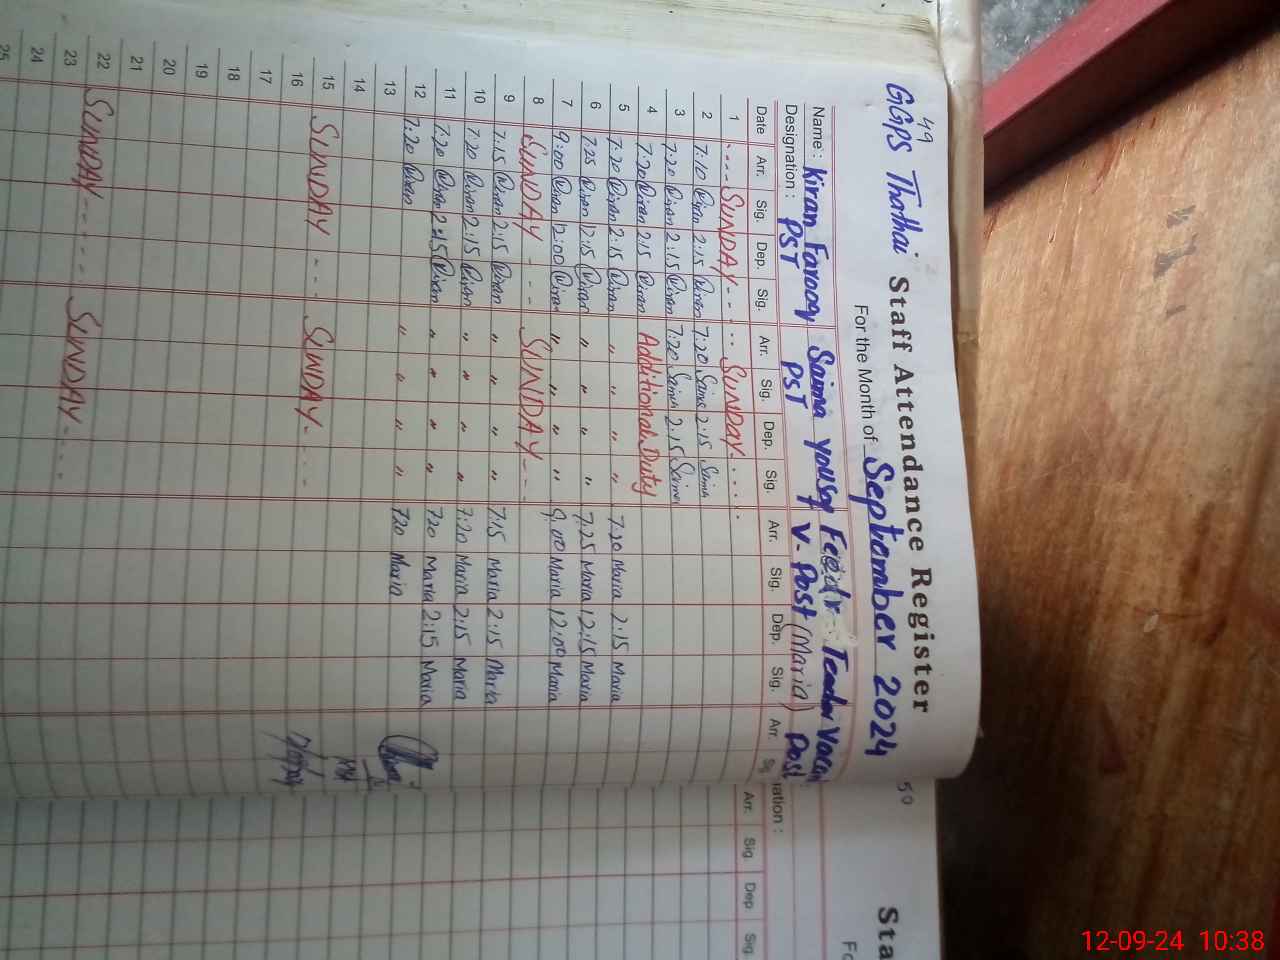 49 50
GGPS Thathai Staff Attendance Register
For the Month of September 2024
Name: Kiran Farooq Saima yousaf Teacher Vacant
Designation: PST PST V. Post (Maria) Post
Date Arr. Sig. Dep. Sig. Arr. Sig. Dep. Sig. Arr. Sig. Dep. Sig. Arr
1 - - - SUNDAY - - - - SUNDAY - - - -
2 7:10 Kiran 2:15 Kiran 7:20 Saima 2:15 Saima
3 7:20 Kiran 2:15 Kiran 7:20 Saima 2:15 Saima
4 7:20 Kiran 2:15 Kiran Additional Duty
5 7:20 Kiran 2:15 Kiran " " " " 7:20 Maria 2:15 Maria
6 7:25 Kiran 12:15 Kiran " " " " 7:25 Maria 12:15 Maria
7 9:00 Kiran 12:00 Kiran " " " " 9:00 Maria 12:00 Maria
8 SUNDAY - - - SUNDAY - - -
9 7:15 Kiran 2:15 Kiran " " " " 7:15 Maria 2:15 Maria
10 7:20 Kiran 2:15 Kiran " " " " 7:20 Maria 2:15 Maria
11 7:20 Kiran 2:15 Kiran " " " " 720 Maria 2:15 Maria
12 7:20 Kiran " " " " 720 Maria
13
14
15 SUNDAY - - - SUNDAY - - - -
16
17
18
19
20
21
22 SUNDAY - - - - SUNDAY - - - -
23
24
25
Sta
Fo
nation :
Arr. Sig. Dep. Sig.
12-09-24 10:38